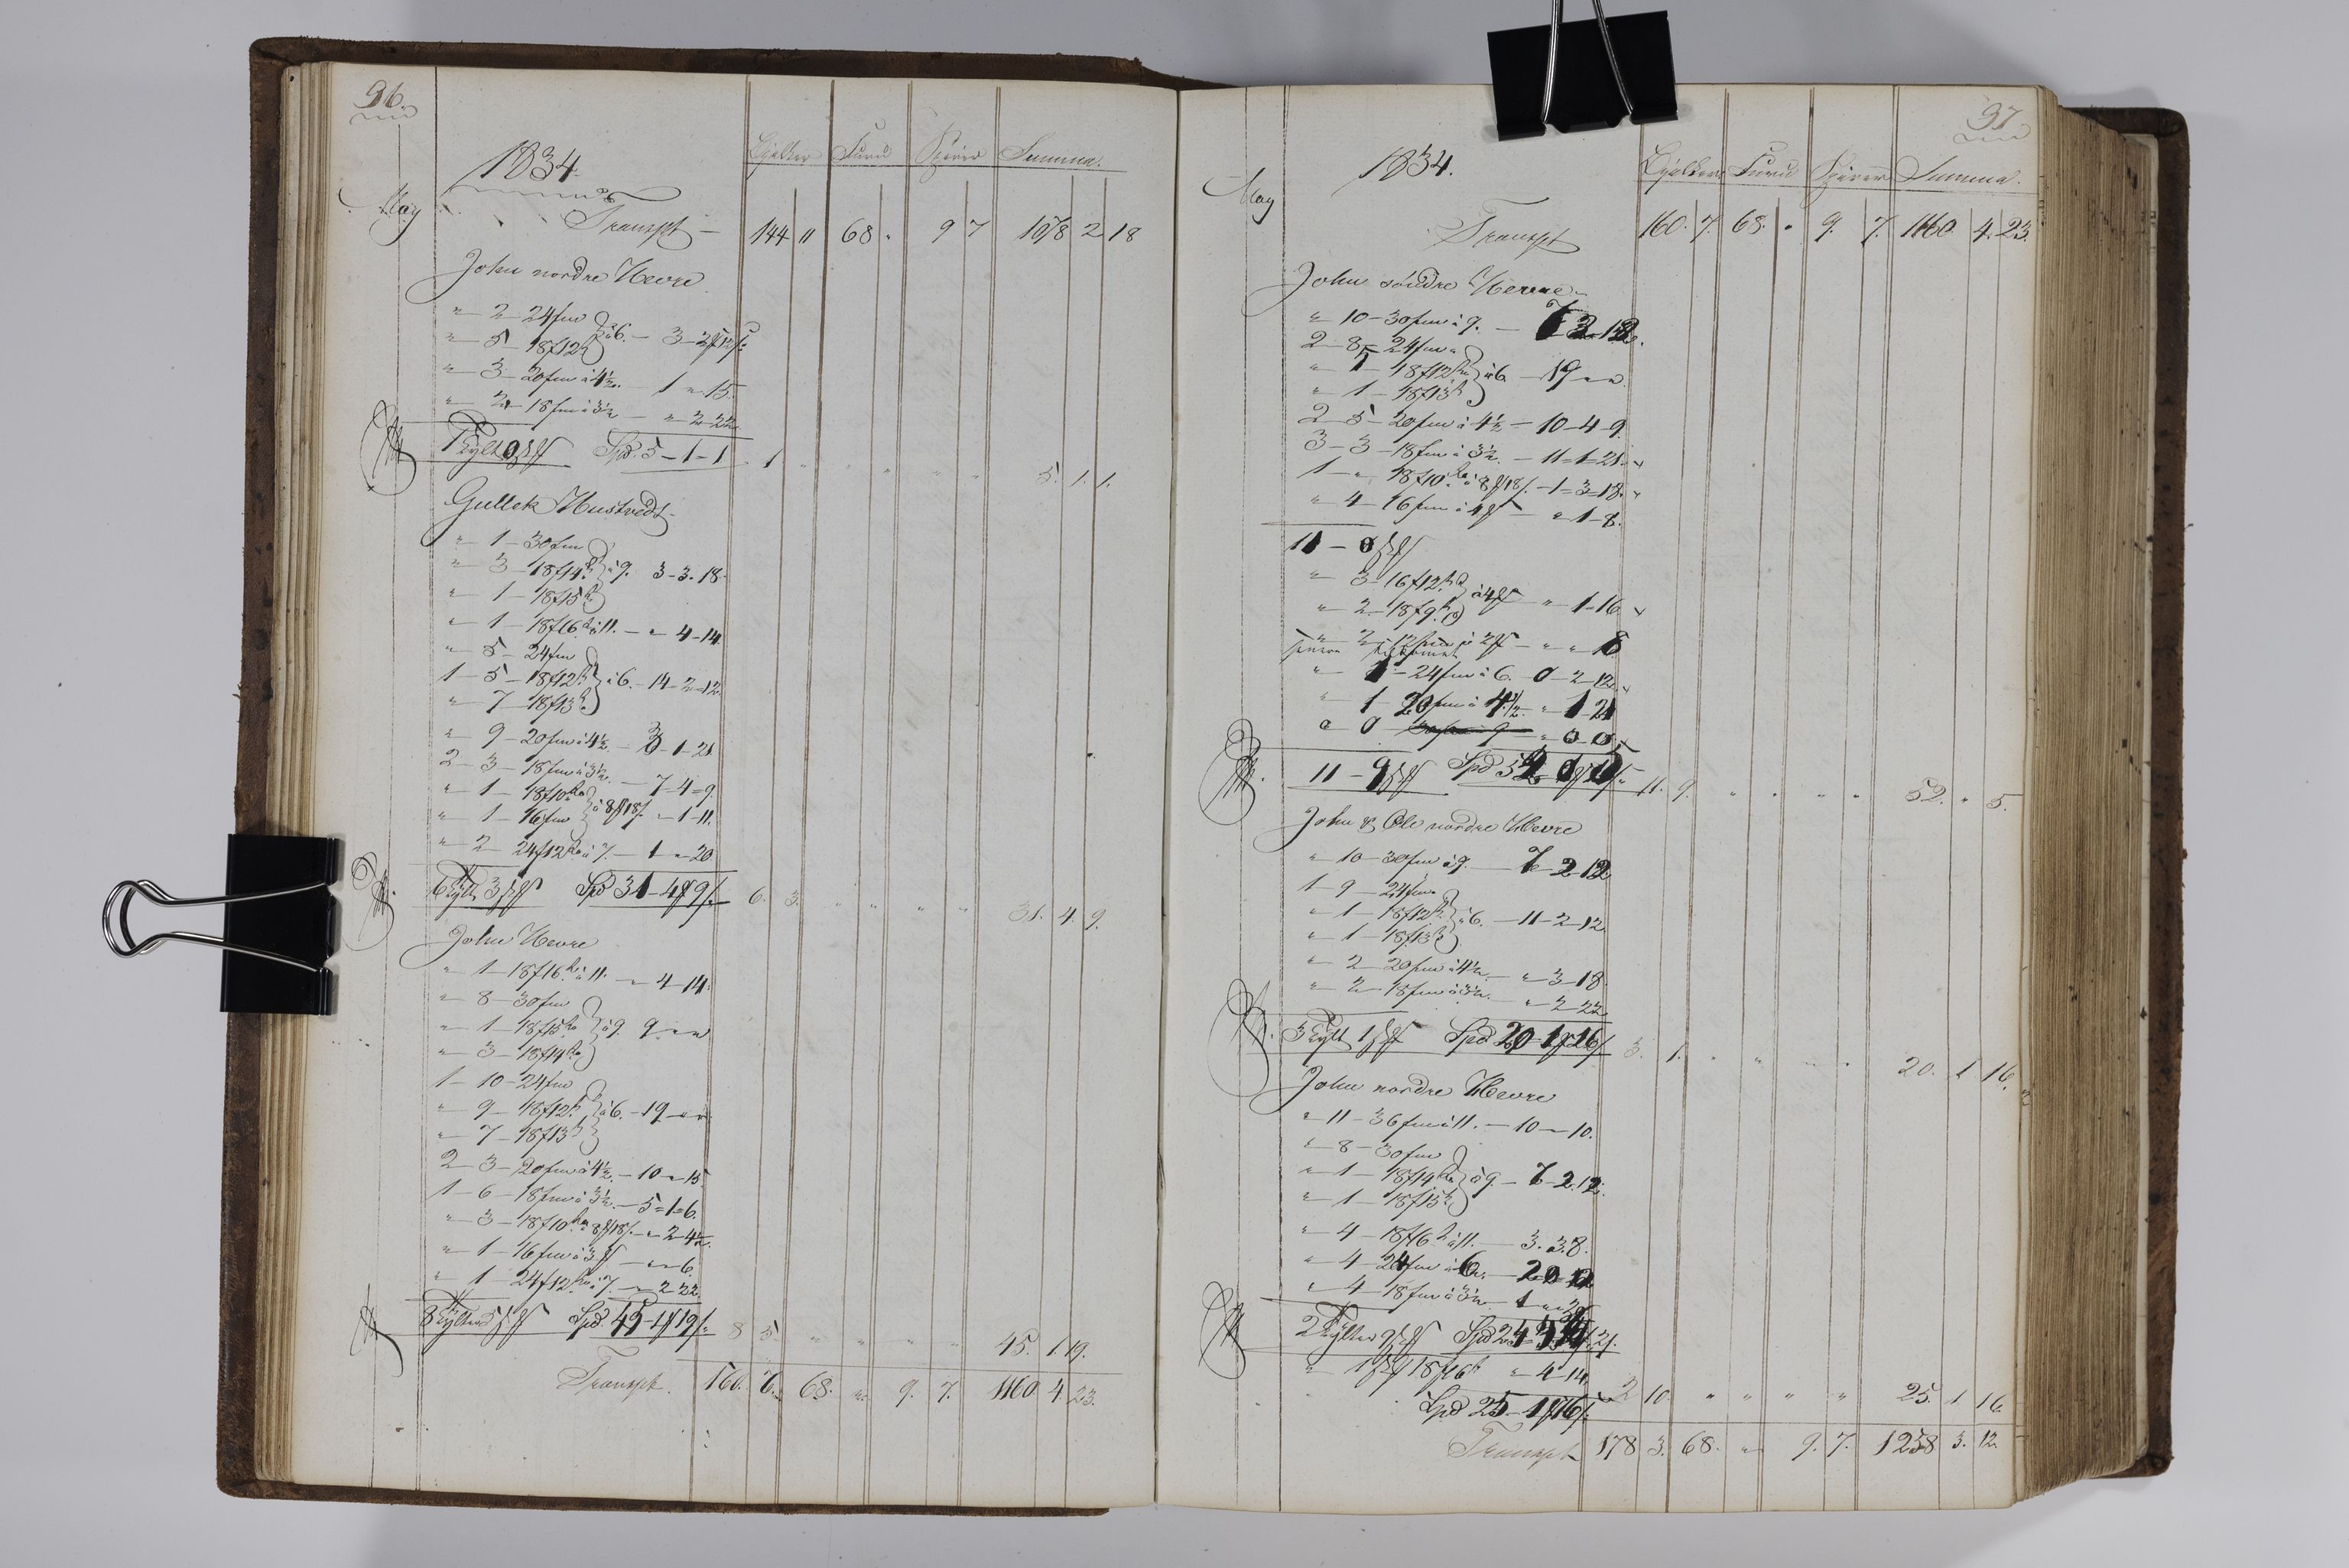 96.
1834.
Bjelker Furu Spirer Summa.
May
Transpt — 144 11 68 " 9 7 1078 2 18
John nordre Hevre
" 2 — 24fm
" 5 — 18f12h } à 6. — 3 — 2
" 3 — 20fm à 4½. — 1 " 15.
" 2 — 18fm à 3½ — " 2 22
1 Tylt 0 Spd. 5 — 1 — 1 1 " " " " " 5. 1. 1.
Gullek Hustvedt
" 1 — 30fm
" 3 — 18f14h } à 9. 3 — 3. 18.
" 1 — 18f15h
" 1 — 18f16h à 11. — " 4 — 14
" 5 — 24fm
1 — 5 — 18f12h } à 6. — 14 — 2 = 12.
" 7 — 18f13h
" 9 — 20fm à 4½. — 3 — 1 — 21
2 — 3 — 18fm à 3½. — 7 — 4 = 9.
" 1 — 18f10h
" 1 — 16fm } à 8f18/. " 1 — 11.
" 2 — 24f12h à 7. — 1 " 20
6 Tylt 3 Spd 31 — 4 9/. 6. 3. " " " " 31. 4. 9.
John Hevre
" 1 — 18f16h à 11. — " 4 14.
" 8 — 30fm
" 1 — 18f15h } à 9. 9 " "
" 3 — 18f14h
1 — 10 — 24fm
" 9 — 18f12h } à 6. — 19 " "
" 7 — 18f13h
2 — 3 — 20fm à 4½. — 10 " 15
1 — 6 — 18fm à 3½. — 5 = 1 = 6.
" 3 — 18f10h à 8f18/. — " 2 — 4½.
" 1 — 16fm à 3 — " " 6.
" 1 — 24f12h à 7. — " 2 22.
8 Tylter 5 Spd. 45 — 1 19/. 8 5. " " " " 45. 1. 19.
Transpt. 160. 7. 68. " 9. 7. 1160. 4. 23.
97
1834.
Bjelker Furu Spirer Summa.
May
Transpt 160. 7. 68. " 9. 7. 1160. 4. 23.
John söndre Hevre
" 10 — 30fm à 9. — 7 2 12.
2 — 8 — 24fm
" 1 — 18f12h } à 6 — 19 " "
" 1 — 18f13h
2 — 5 — 20fm à 4½ — 10 — 4 — 9.
3 — 3 — 18fm à 3½. — 11 = 1 = 21.
1 — " 18f10h à 8f18/. — 1 = 3 = 18.
" 4 — 16fm à 4 — " 1 — 8.
11 — 0
" 3 — 16f12h
" 2 — 18f9h } à 4 " 1 — 16
" 2 — 12fm à 2 — " " 8
" 1 — 24fm à 6. 0 — 2 — 12.
" 1 20fm à 4½. " 1 21
" 0 " 0 0
11 — 9 Spd 52 11. 9. " " " " 52. " 5.
John & Ole nordre Hevre
" 10 — 30fm à 9. — 7 — 2 12
1 — 9 — 24fm
" 1 — 18f12h } à 6. — 11 — 2 — 12
" 1 — 18f13h
" 2 — 20fm à 4½ — " 3 — 18
" 2 — 18fm à 3½. — " 2 — 22
3 Tylt 1 Spd 20 1 16/. 3. 1. " " " " 20. 1. 16.
John nordre Hevre
" 11 — 36fm à 11. — 10 " 10.
" 8 — 30fm
" 1 — 18f14h } à 9. — 7 — 2. 12.
" 1 — 18f15h
" 4 — 18f16h à 11. — 3. 3. 8.
" 4 — 24fm à 6. — 2 0
" 4 — 18fm à 3½. — 1
2 Tylter 9 Spd 24
" 1 18f16h " 4 — 14
Spd 25 — 1 16/. 2 10. " " " " 25. 1. 16.
Transpt 178 3. 68. " 9. 7. 1258 3. 12.